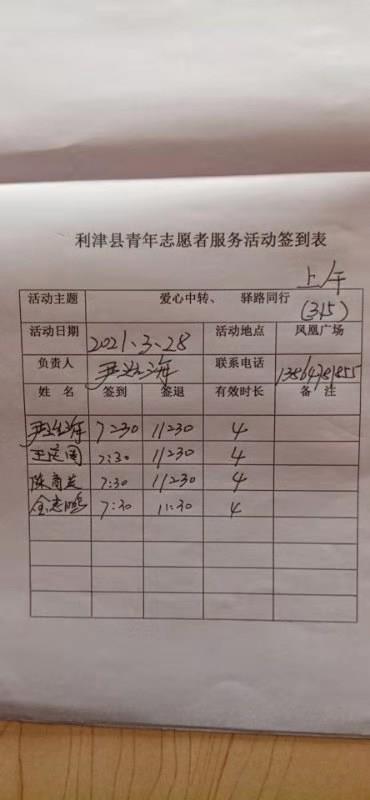 利津县青年志愿者服务活动签到表
上午
活动主题 爱心中转、 驿路同行 (315)
活动日期 2021.3.28 活动地点 凤凰广场
负责人 联系电话
姓 名 签到 签退 有效时长 备 注
7:30 11:30 4
7:30 11:30 4
7:30 11:30 4
7:30 11:30 4